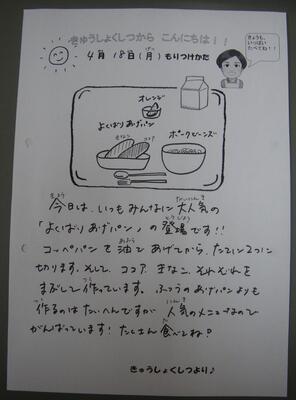 きゅうしょくしつから こんにちは!!
きょうも、いっぱいたべてね!!
4月 18日(月) もりつけかた
オレンジ
よくばりあげパン
きなこ ココア
ポークビーンズ
今日は、いつもみんなに大人気の
「よくばりあげパン」の登場です!!
コッペパンを油であげてから、たてに2つに
切ります。そして、ココア、きなこ、それぞれを
まぶして作っています。ふつうのあげパンよりも
作るのはたいへんですが 人気のメニューなので
がんばっています!たくさん食べてね?
きゅうしょくしつより♪